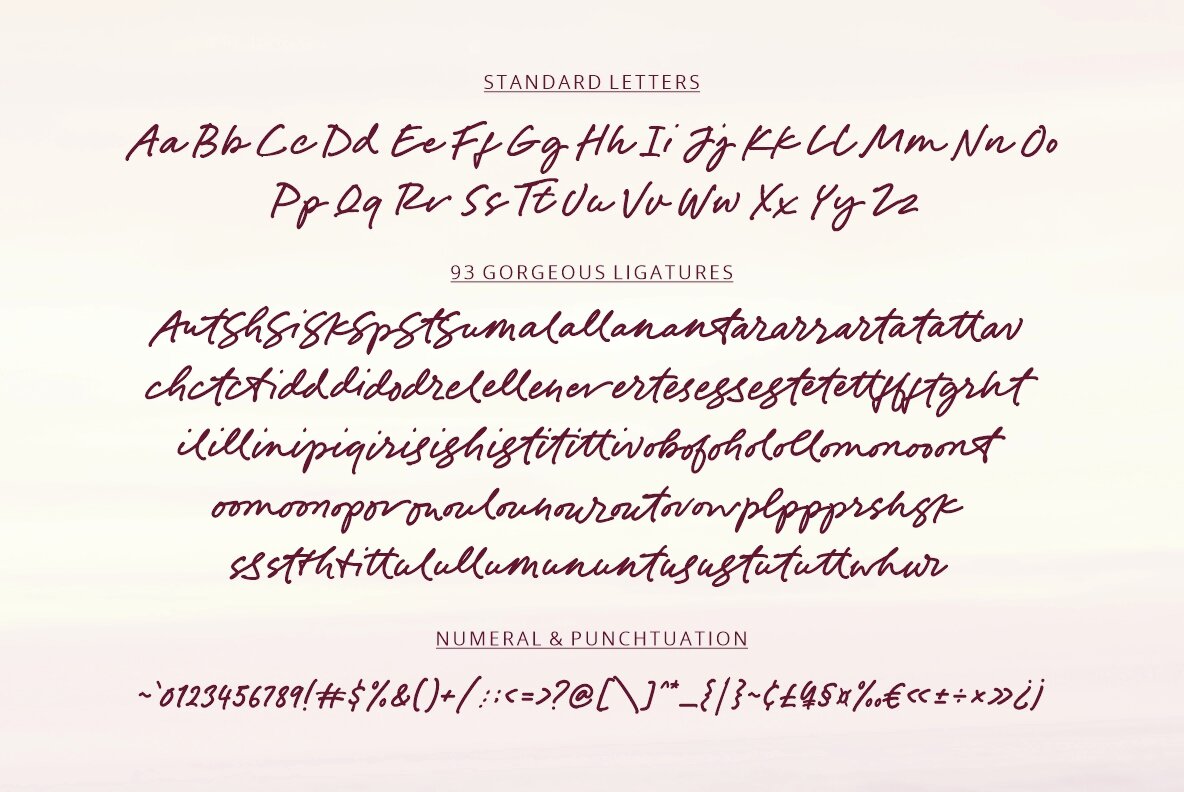 STANDARD LETTERS
Aa Bb Cc Dd Ee Ff Gg Hh Ii Jj Kk Ll Mm Nn Oo
Pp Qq Rr Ss Tt Uu Vv Ww Xx Yy Zz
93 GORGEOUS LIGATURES
AutShSiSkSpStSumalallananantararrartatattav
chctctidddidodrelellenerertesessestetettffftgrht
ilillinipiqirisishistitittivobofoholollomonooont
oomoonoporououlounouroutovowplppprshsk
ssstthtittulullumununtusustututtwhwr
NUMERAL & PUNCHTUATION
~`0123456789!#$%&()+/:;<=>?@[\]^*_{|}~¢£¥§¤‰€«±÷×»¿¡